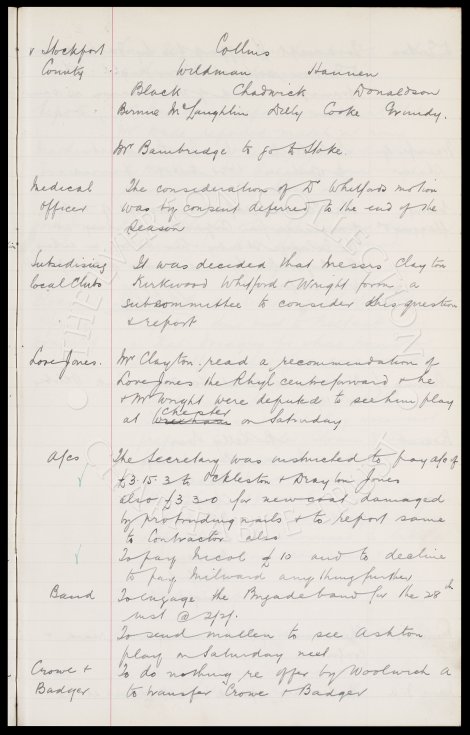 v Stockport County
Collins
Wildman Hannen
Black Chadwick Donaldson
Birnie McLaughlin Dilly Cooke Grundy.
Mr Bainbridge to go to Stoke.
Medical Officer
The consideration of Dr Whitford's motion
was by consent deferred to the end of the
Season
Subsidising local Clubs
It was decided that Messrs Clayton
Kirkwood Whitford & Wright form a
subcommittee to consider this question
& report
Love Jones.
Mr Clayton read a recommendation of
Love Jones the Rhyl centreforward & he
& Mr Wright were deputed to see him play
at Wrexham Chester on Saturday
A/cs
The Secretary was instructed to pay a/c of
£3.15.3 to Ockleston & Drayton Jones
also £3.3.0 for new coat damaged
by protruding nails & to report same
to Contractor also
To pay Nicol £10 and to decline
to pay Milward anything further
Band
To engage the Brigade band for the 28th
inst @ 2/2/.
To send Mullen to see Ashton
play on Saturday next
Crowe & Badger
To do nothing re offer by Woolwich A
to transfer Crowe & Badger